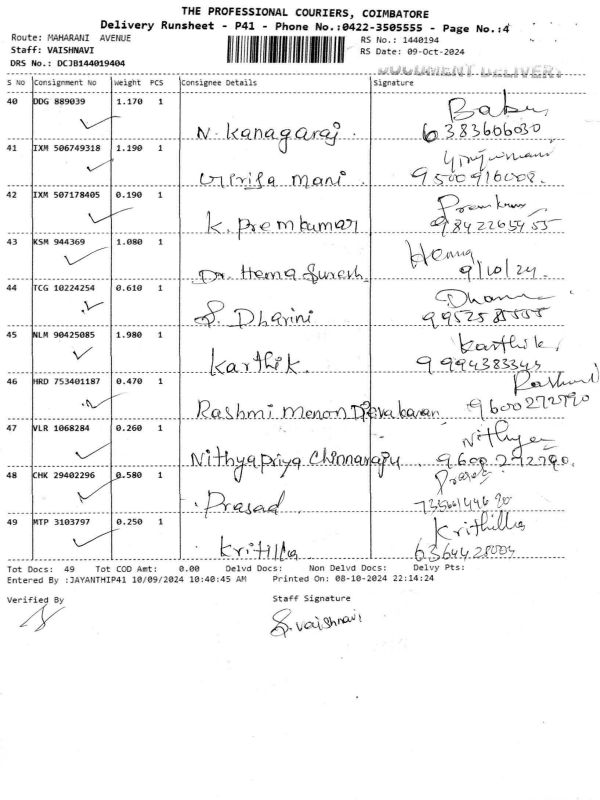 THE PROFESSIONAL COURIERS, COIMBATORE
Delivery Runsheet - P41 - Phone No.:0422-3505555 - Page No.:4
Route: MAHARANI AVENUE
RS No.: 1440194
Staff: VAISHNAVI
RS Date: 09-Oct-2024
DRS No.: DCJB144019404
DOCUMENT DELIVERY
S No Consignment No Weight PCS Consignee Details Signature
40 DDG 889039 1.170 1
N. Kanagaraj. Babu
6383606030
41 IXM 506749318 1.190 1
Mani
42 IXM 507178405 0.190 1
K. Premkumar
9842265455
43 KSM 944369 1.080 1
Dr. Hema Suresh Hema
9/10/24
44 TCG 10224254 0.610 1
S. Dharini
9952585555
45 NLM 90425085 1.980 1
Karthik. Karthik
46 HRD 753401187 0.470 1
Rashmi Menon Devakaran
9600272790
47 VLR 1068284 0.260 1
Nithyapriya Chinnaraju Nithya
48 CHK 29402296 0.580 1
Prasad
49 MTP 3103797 0.250 1
Krithika
Tot Docs: 49 Tot COD Amt: 0.00 Delvd Docs: Non Delvd Docs: Delvy Pts:
Entered By :JAYANTHIP41 10/09/2024 10:40:45 AM Printed On: 08-10-2024 22:14:24
Verified By Staff Signature
S. Vaishnavi